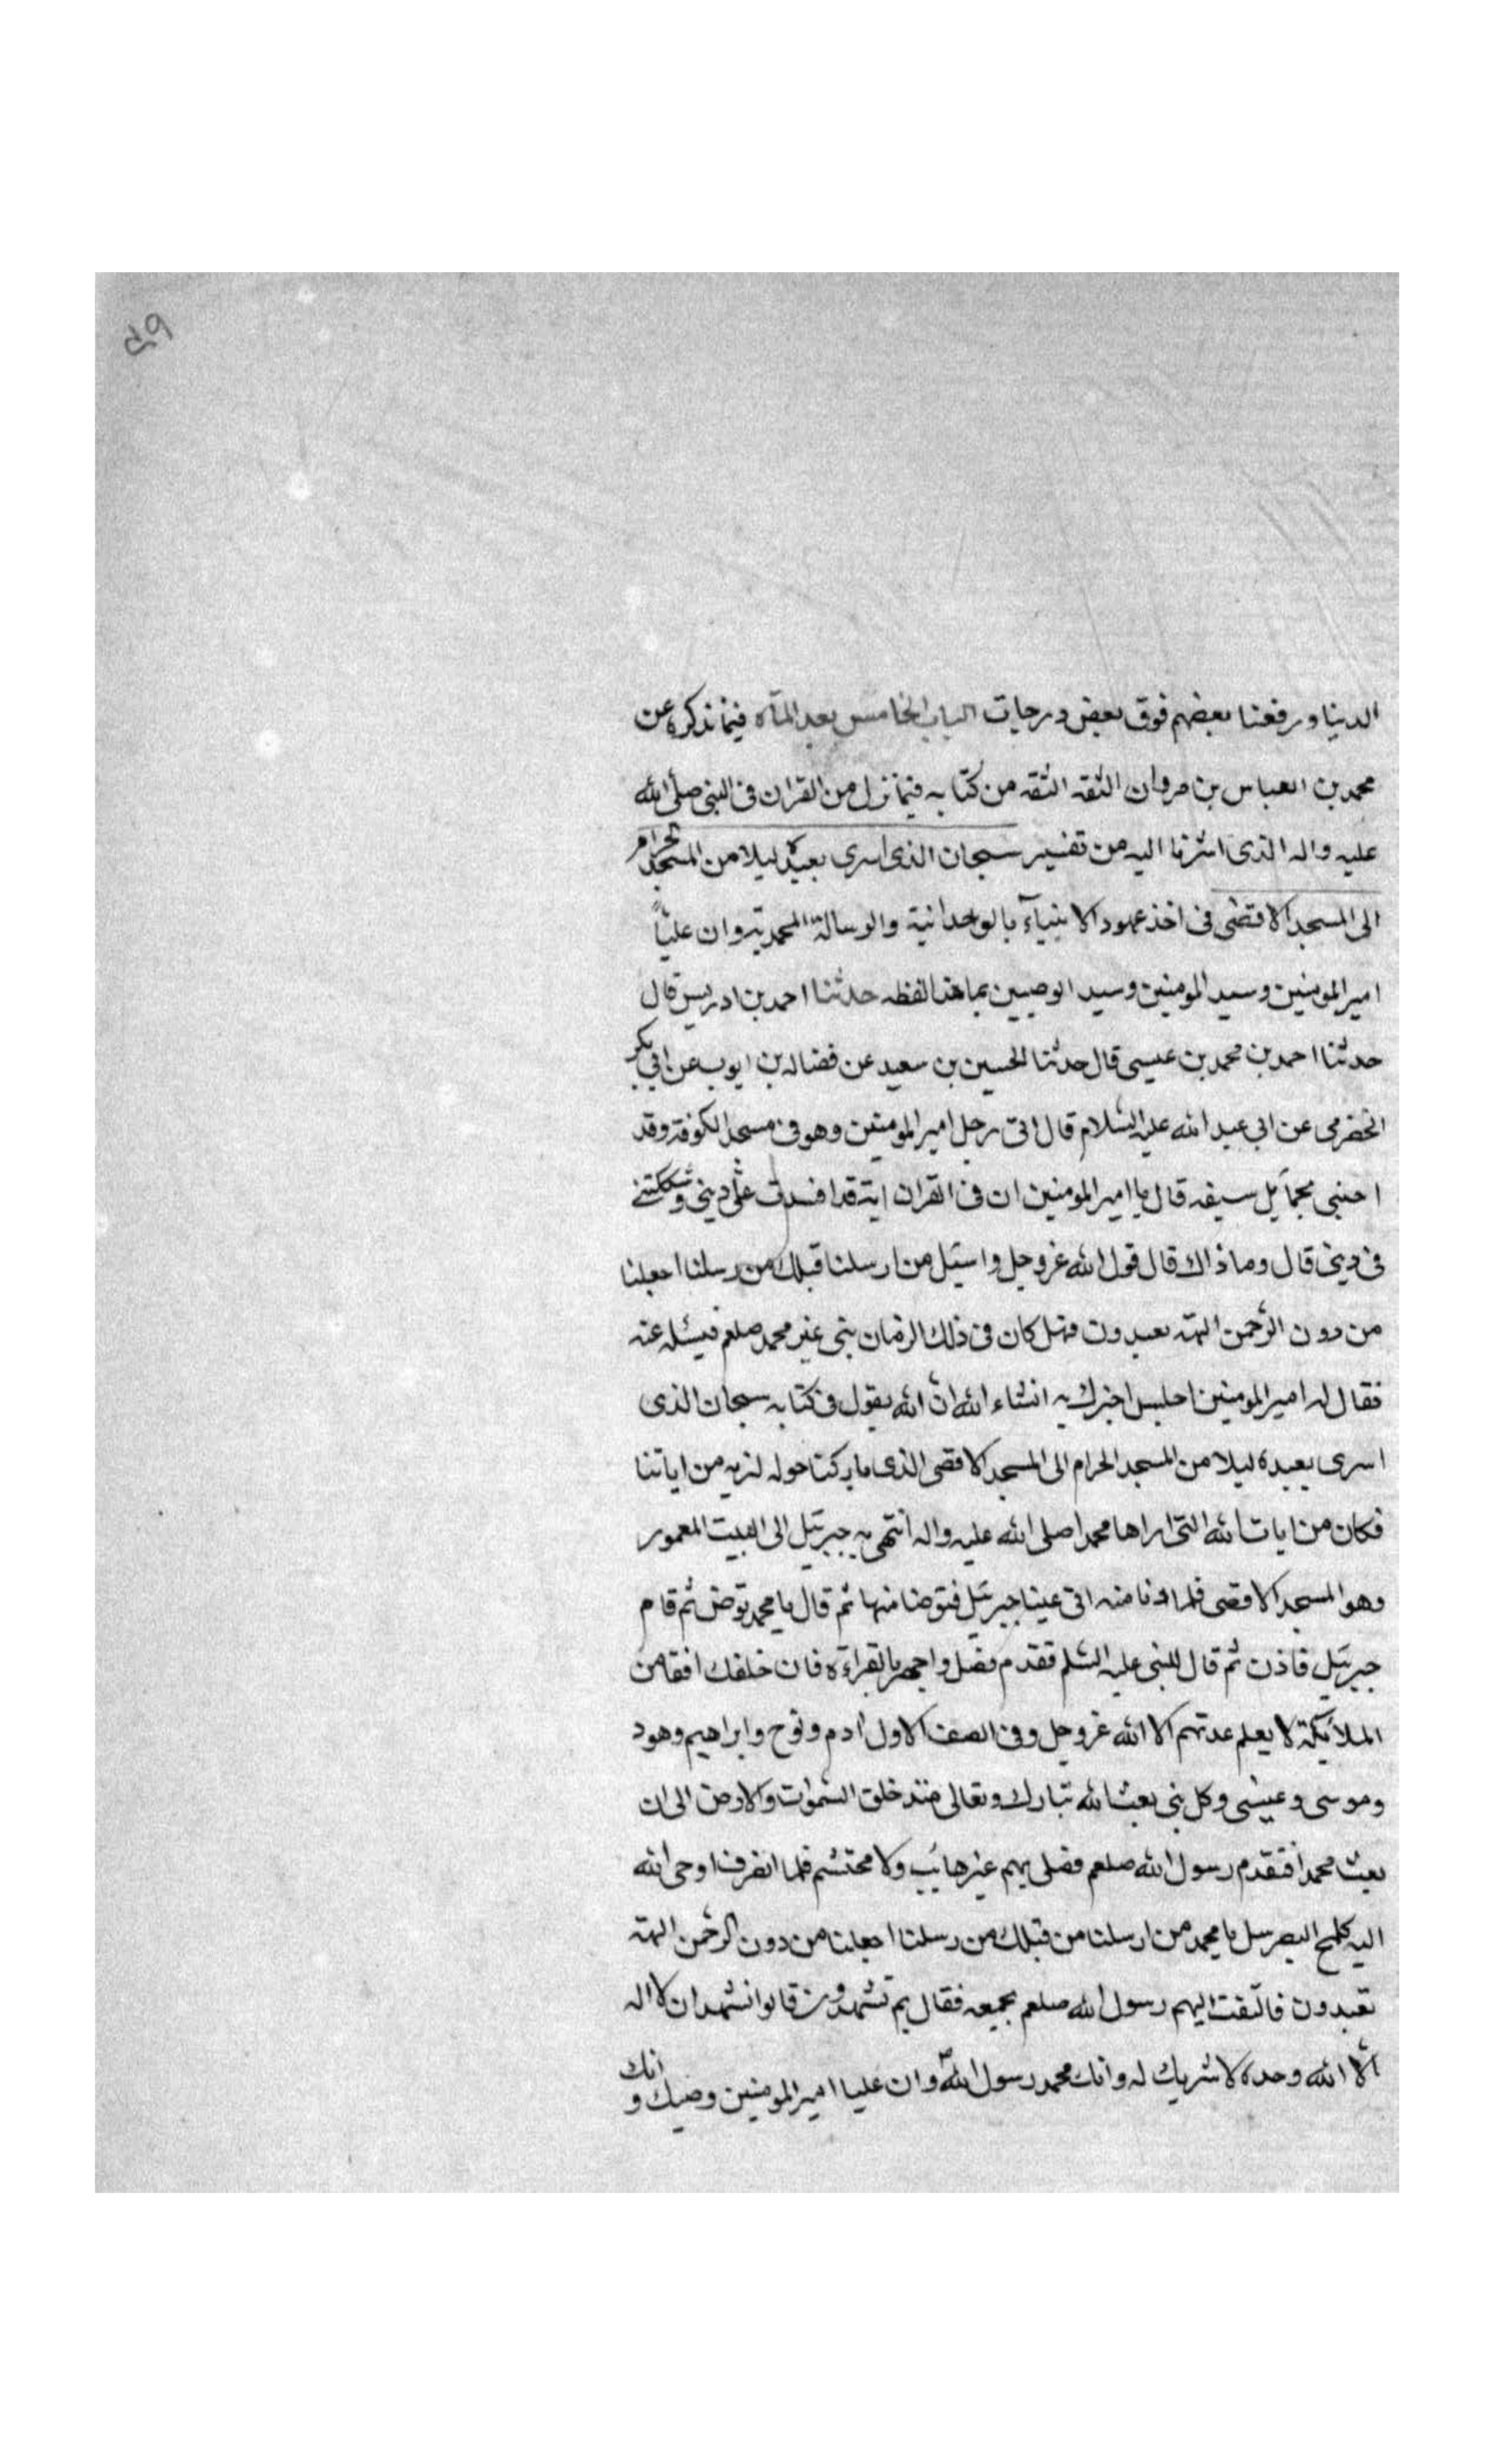 ٥٩
الدينا ورفعنا بعضهم فوق بعض درجات الباب الخامس بعد المآه فيما نذكره عن
محمد بن العباس بن مروان الثقه الثقه من كتابه فيما نزل من القران فى النبى صلى الله
عليه واله الذى اشرنا اليه من تفسير سبحان الذى اسرى بعبده ليلا من المسجد الحرام
الى المسجد الاقصٰى فى اخذ عهود الانبيآء بالوحدانية والرسالة المحمديه وان علياً
امير المومنين وسيد المومنين وسيد الوصيين بما هذا لفظه حدثنا احمد بن ادريس قال
حدثنا احمد بن محمد بن عيسى قال حدثنا الحسين بن سعيد عن فضاله بن ايوب عن ابى بكر
الحضرمى عن ابى عبد الله عليه السّلام قال اتى رجل امير المومنين وهو فى مسجد الكوفة وقد
احتبى بحمآيل سيفه قال يا امير المومنين ان فى القران اية قد افسدت علّى دينى وشككتنى
فى دينى قال وما ذاك قال قول الله عز وجل واسئل من ارسلنا قبلك من رسلنا اجعلنا
من دون الرّحمن الهة يعبدون فهل كان فى ذلك الزمان نبى غير محمد صلعم فيسئله عنه
فقال له امير المومنين اجلس اخبرك به انشاء الله انّ الله يقول فى كتابه سبحان الذى
اسرى بعبده ليلا من المسجد الحرام الى المسجد الاقصى الذى باركنا حوله لنريه من اياتنا
فكان من ايات الله التى اراها محمدا صلى الله عليه واله انتهى به جبرئيل الى البيت المعمور
وهو المسجد الاقصى فلما دنا منه اتى عينا جبرئيل فتوضا منها ثم قال يا محمد توض ثم قام
جبرئيل فاذن ثم قال للنبى عليه السّلم تقدم فصل واجهر بالقرآءة فان خلفك افقا من
الملآئكة لا يعلم عدتهم الا الله عز وجل وفى الصف الاول ادم ونوح وابراهيم وهود
وموسى وعيسٰى وكل نبى بعث الله تبارك وتعالى منذ خلق السّموٰت والارض الى ان
بعث محمدا فتقدم رسول الله صلعم فصلى بهم غير هايب ولا محتشم فلما انصرف اوحى الله
اليه كلمح البصر سل يا محمد من ارسلنا من قبلك من رسلنا اجعلنا من دون الرّحمن الهة
تعبدون فالتفت اليهم رسول الله صلعم بجميعه فقال بم تشهدون قالوا نشهد ان لا اله
الّا الله وحده لا شريك له وانك محمد رسول الله وان عليا امير المومنين وصيك وانك